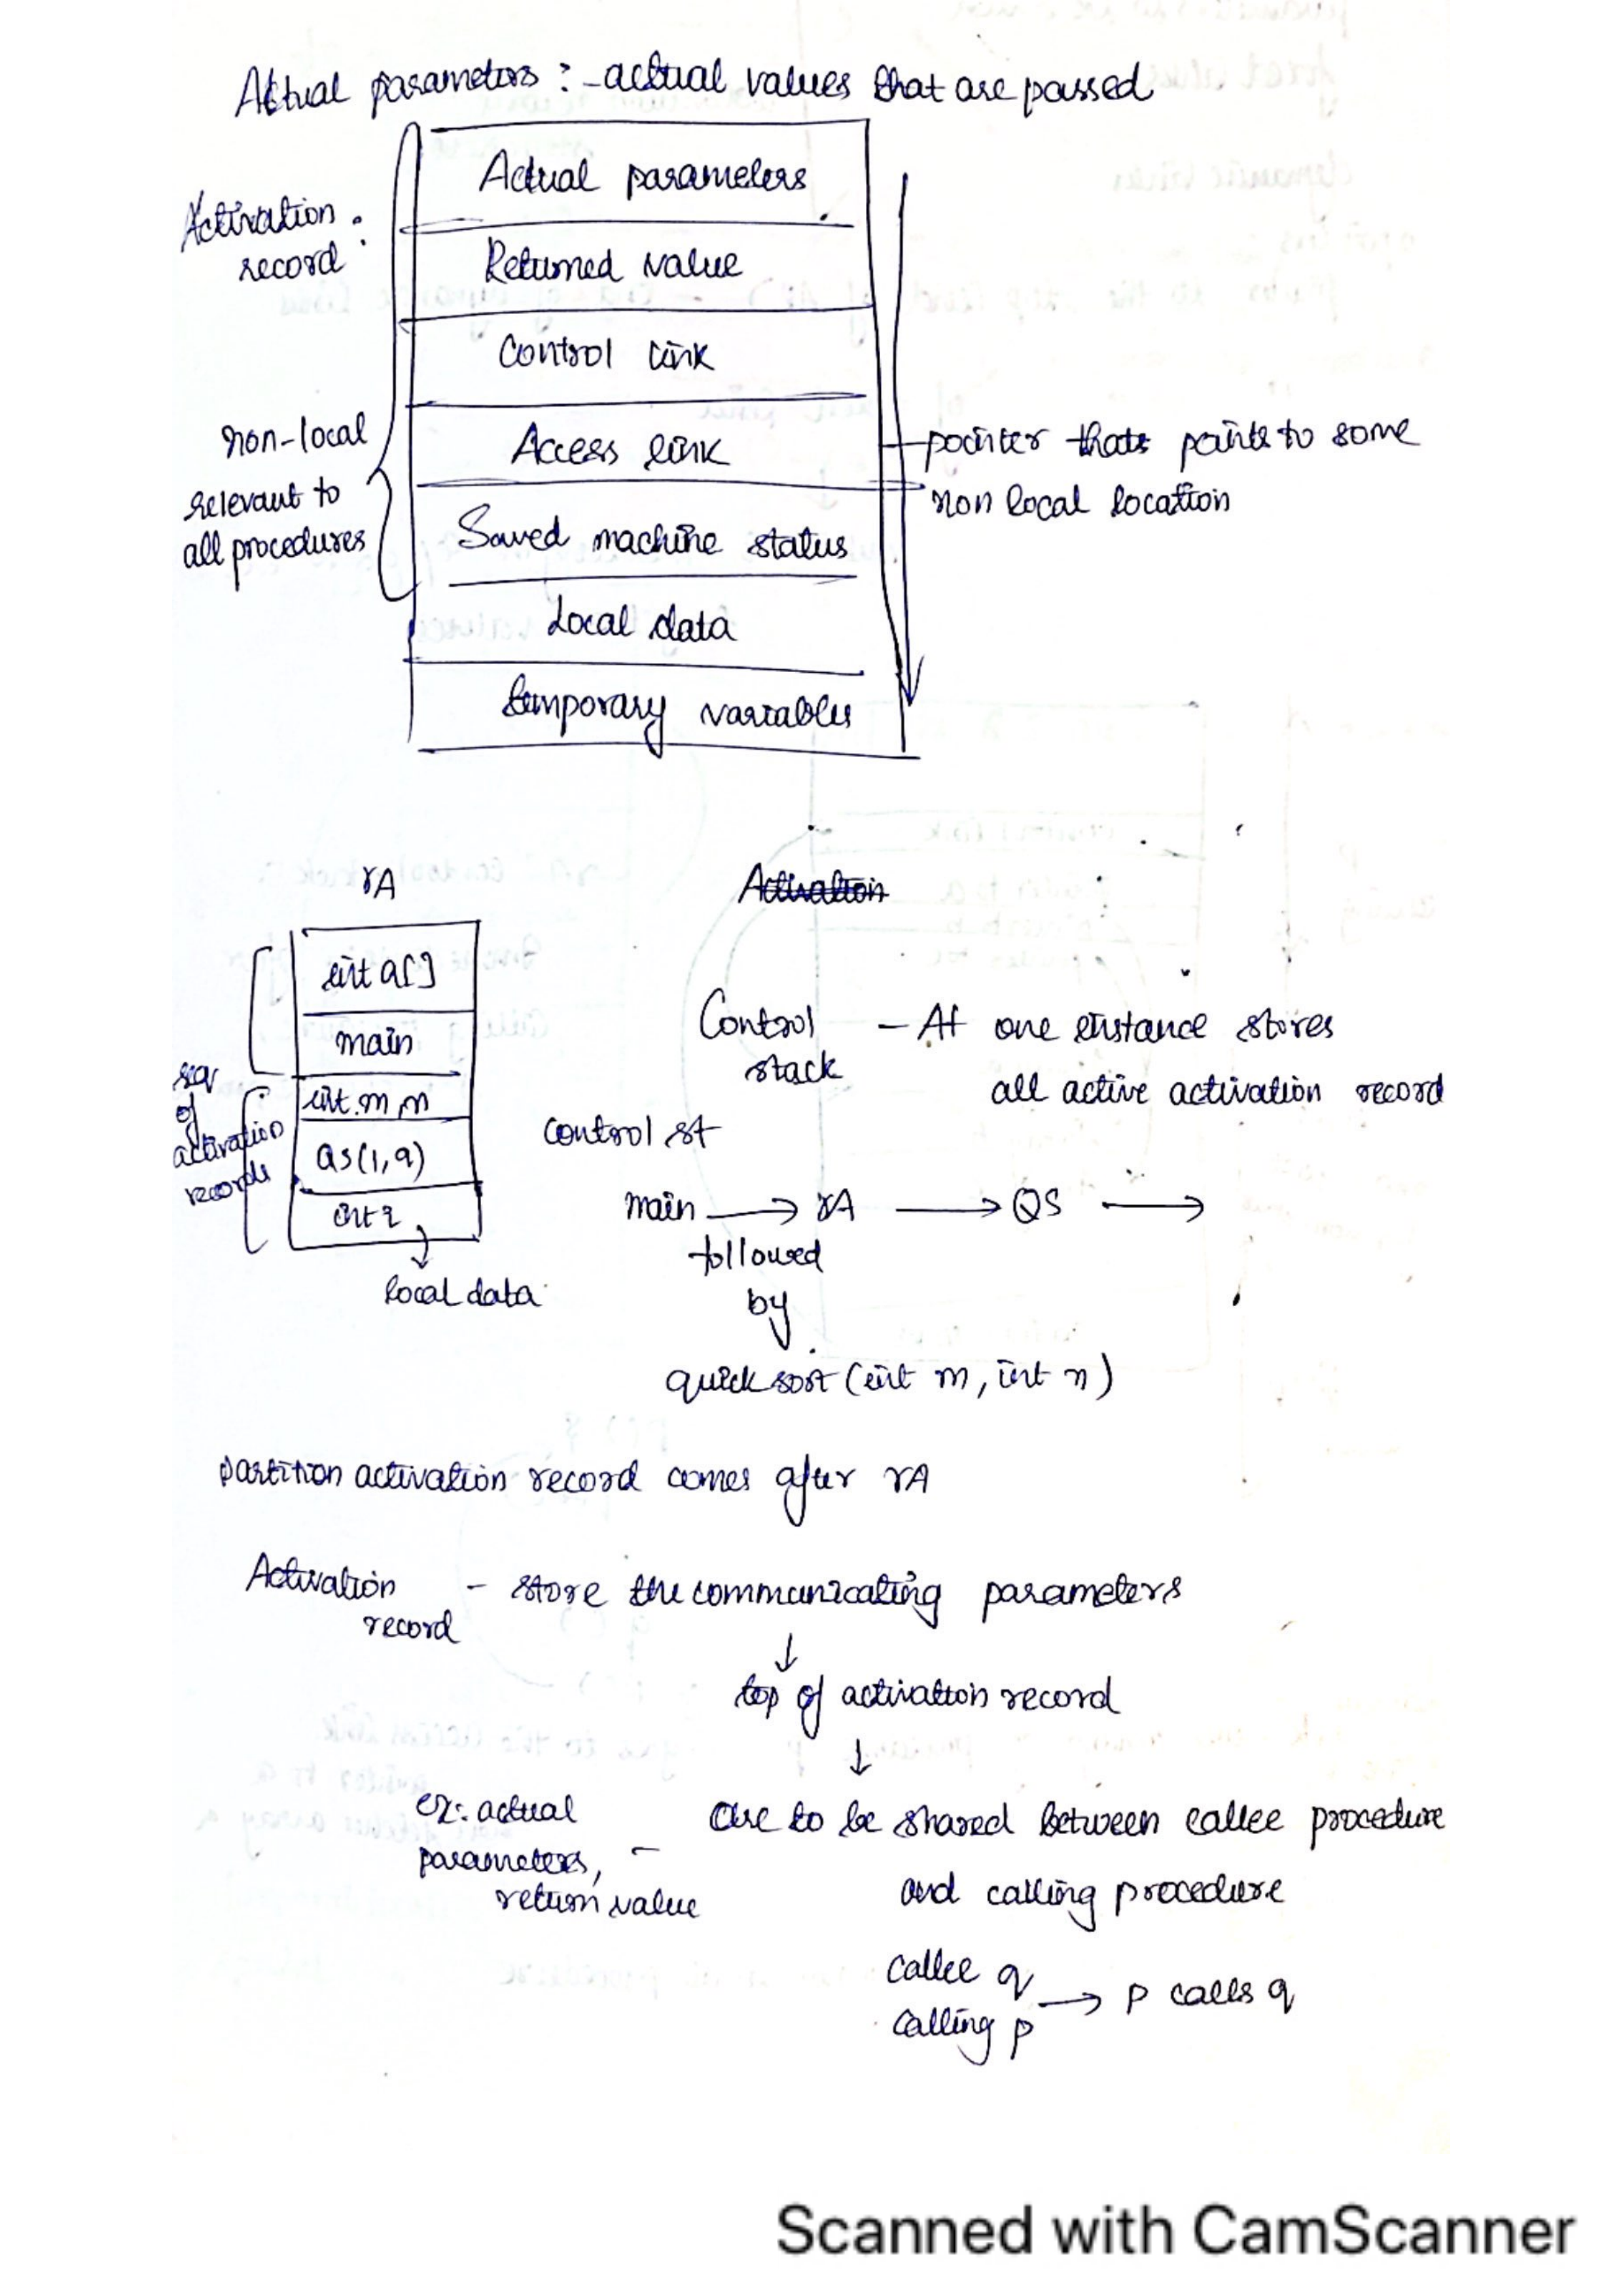 Actual parameters :- actual values that are passed
Activation :
record
Actual parameters
Returned value
Control link
Access link
Saved machine status
Local data
temporary variables
non-local
relevant to
all procedures
pointer thats points to some
non local location
rA
int a[]
main
int m,n
qs(1,9)
int i
local data
of
activation
records
Activation
Control
stack
- At one instance stores
all active activation record
control st
main → rA → QS →
followed
by
quicksort (int m, int n)
partition activation record comes after rA
Activation
record
- store the communicating parameters
↓
top of activation record
↓
ex: actual
parameters, -
return value
are to be shared between callee procedure
and calling procedure
callee q
calling p
→ P calls q
Scanned with CamScanner